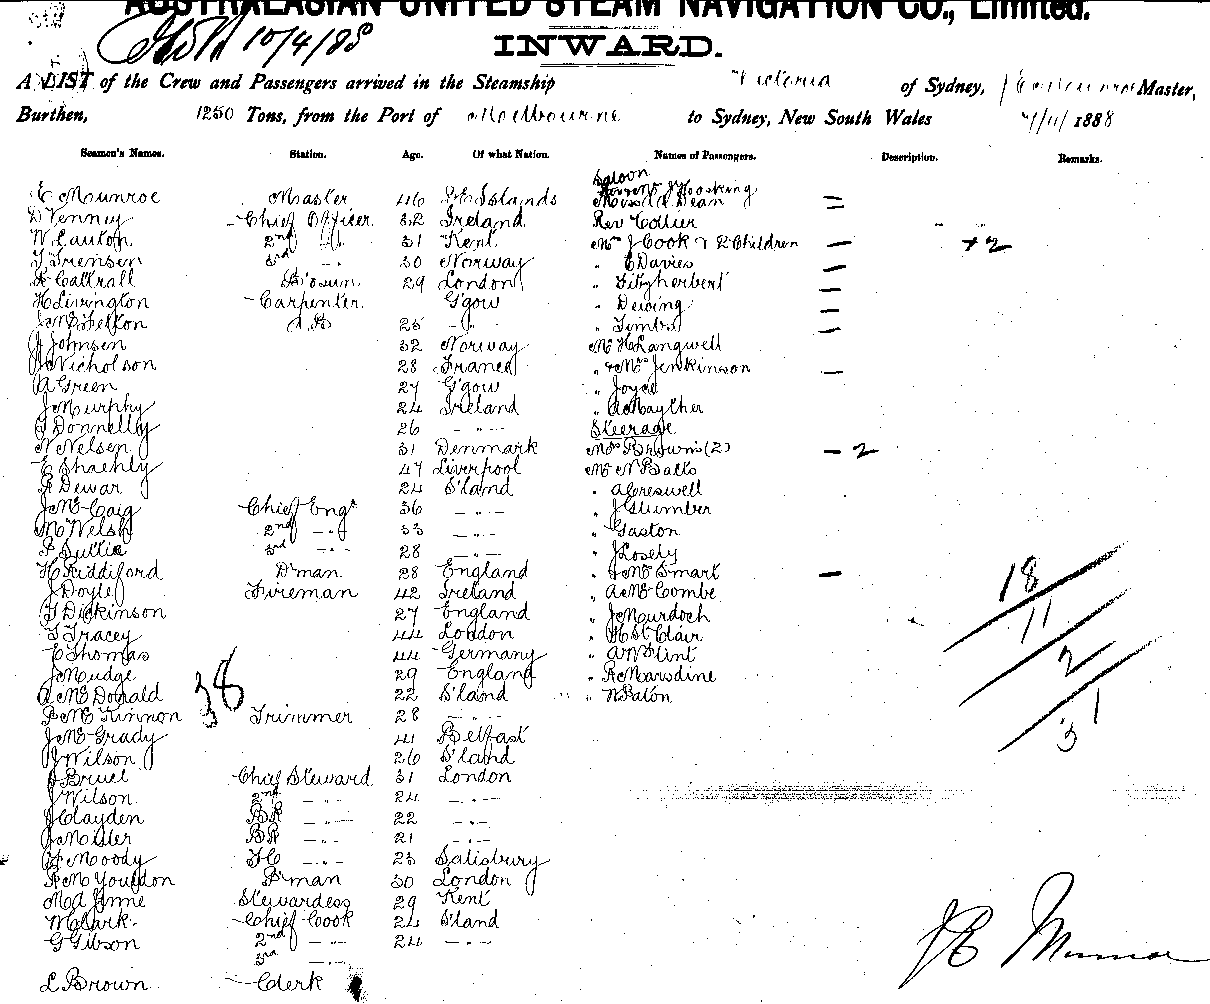 AUSTRALASIAN UNITED STEAM NAVIGATION CO., Limited.
10/4/88
INWARD.
A LIST of the Crew and Passengers arrived in the Steamship Victoria of Sydney, Master,
Burthen, 1250 Tons, from the Port of Melbourne to Sydney, New South Wales 7/11/1888
Seamen's Names. Station. Age. Of what Nation. Names of Passengers. Description. Remarks.
Saloon
E Munroe Master 46 Islands Miss Dean
D Venney Chief Officer 32 Ireland Rev Collier
W Lauton 2nd -"- 31 Kent Mrs J Cook & 2 Children — +2
T Sorensen 3rd -"- 30 Norway " C Davies —
A Cattrall Bosun 29 London " Fitzherbert —
H Livington Carpenter G'gow " Dewing —
J McFelton A.B 25 -"- " Timbs —
J Johnsen 32 Norway Mr H Langwell
J Nicholson 28 France " & Mrs Jenkinson —
A Green 27 G'gow " Joyce
J Murphy 24 Ireland " A Mayther
J Donnelly 26 -"- Steerage
N Nelsen 31 Denmark Mrs Browns (2) — 2
E Shaehly 47 Liverpool Mr N Batts
A Dewar 24 S'land " A Creswell
J McCaig Chief Engr 36 -"- " J Glumber
M Welsh 2nd -"- 33 -"- " Gaston
P Suttie 3rd -"- 28 -"- " J Losely
H Riddiford D'man 28 England " J McSmart —
J Doyle Fireman 42 Ireland " A McCombe
T Dickinson 27 England " J Murdoch
T Tracey 44 London " H St Clair
E Thomas 44 Germany " A W Flint
J Mudge 29 England " R Marsdine
A McDonald 22 S'land " W Paton
P McKinnon Trimmer 28 -"-
J McGrady 41 Belfast
J Wilson 26 S'land
J Bruel Chief Steward 31 London
J Wilson 2nd -"- 24 -"-
J Clayden BR -"- 22 -"-
J Miller BR -"- 21 -"-
H Moody FC -"- 23 Salisbury
R M Youldon P'man 30 London
M A Stewardess 29 Kent
W Clark Chief Cook 24 S'land
G Gibson 2nd -"- 24 -"-
3rd -"-
L Brown Clerk
38
18
11
2
1
3
J E Munroe